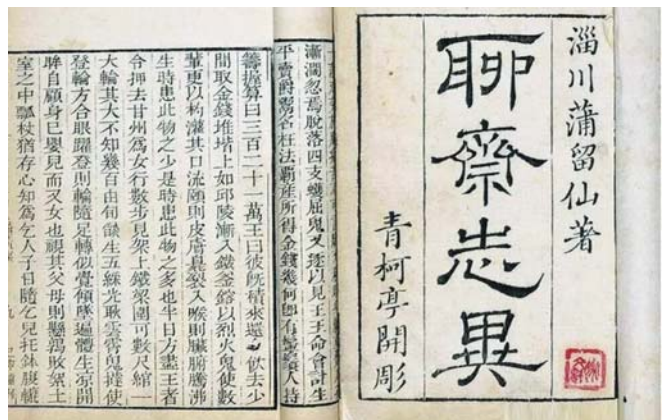 淄川蒲留仙著
聊齋志異
青柯亭開彫
忽焉脫落四支蠖屈鬼又逐以見王王命會計生
平賣爵鬻名枉法霸產所得金錢幾何即有鬡鬚人持
籌握算曰三百二十一萬王曰彼旣積來還飲去少
間取金錢堆堦上如邱陵漸入鐵釜鎔以烈火鬼使數
輩更以杓灌其口流頤則皮膚臭裂入喉則臟腑騰沸
生時患此物之少是時患此物之多也半日方盡王者
令押去甘州爲女行數步見架上鐵梁圍可數尺綰一
大輪其大不知幾百由旬燄生五綵光耿雲霄鬼撻使
登輪方合眼躍登則輪隨足轉似覺傾墜遍體生凉開
眸自顧身已嬰兒而又女也視其父母則懸鶉敗絮土
室之中瓢杖猶存心知爲乞人子日隨乞兒托鉢腹轆